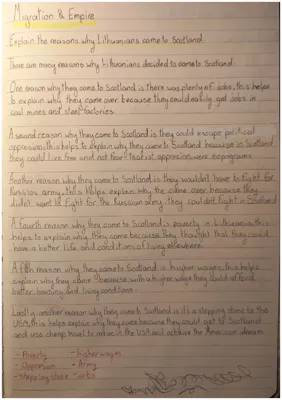 Migration & Empire
Explain the reasons why Lithuanians came to Scotland.
There are many reasons why Lithuanians decided to come to Scotland.
One reason why they came to Scotland is there was plenty of jobs, this helps
to explain why they came over because they could easily get jobs in
coal mines and steel factories.
A second reason why they came to Scotland is they could escape political
oppression, this helps to explain why they came to Scotland because in Scotland
they could live free and not fear tsarist oppression
Another reason why they came to Scotland is they wouldn't have to fight for
Russian army, this helps explain why the came over because they
didn't want to fight for the Russian army, they couldn't fight in Scotland
A fourth reason why they came to Scotland is poverty in Lithuania, this
helps to explain why they came because they thought that they could
have a better life and conditions of living elsewhere.
A fifth reason why they came to Scotland is higher wages, this helps
explain why they came because with a higher wage they could afford
better housing and living conditions.
Lastly, another reason why they came to Scotland is it's a stepping stone to the
USA, this helps explain why they came because they could get to Scotland
and use cheap travel to make it to the USA and achieve the American dream.
- Poverty - higher wages
- Oppression - Army
- Stepping stone - Jobs